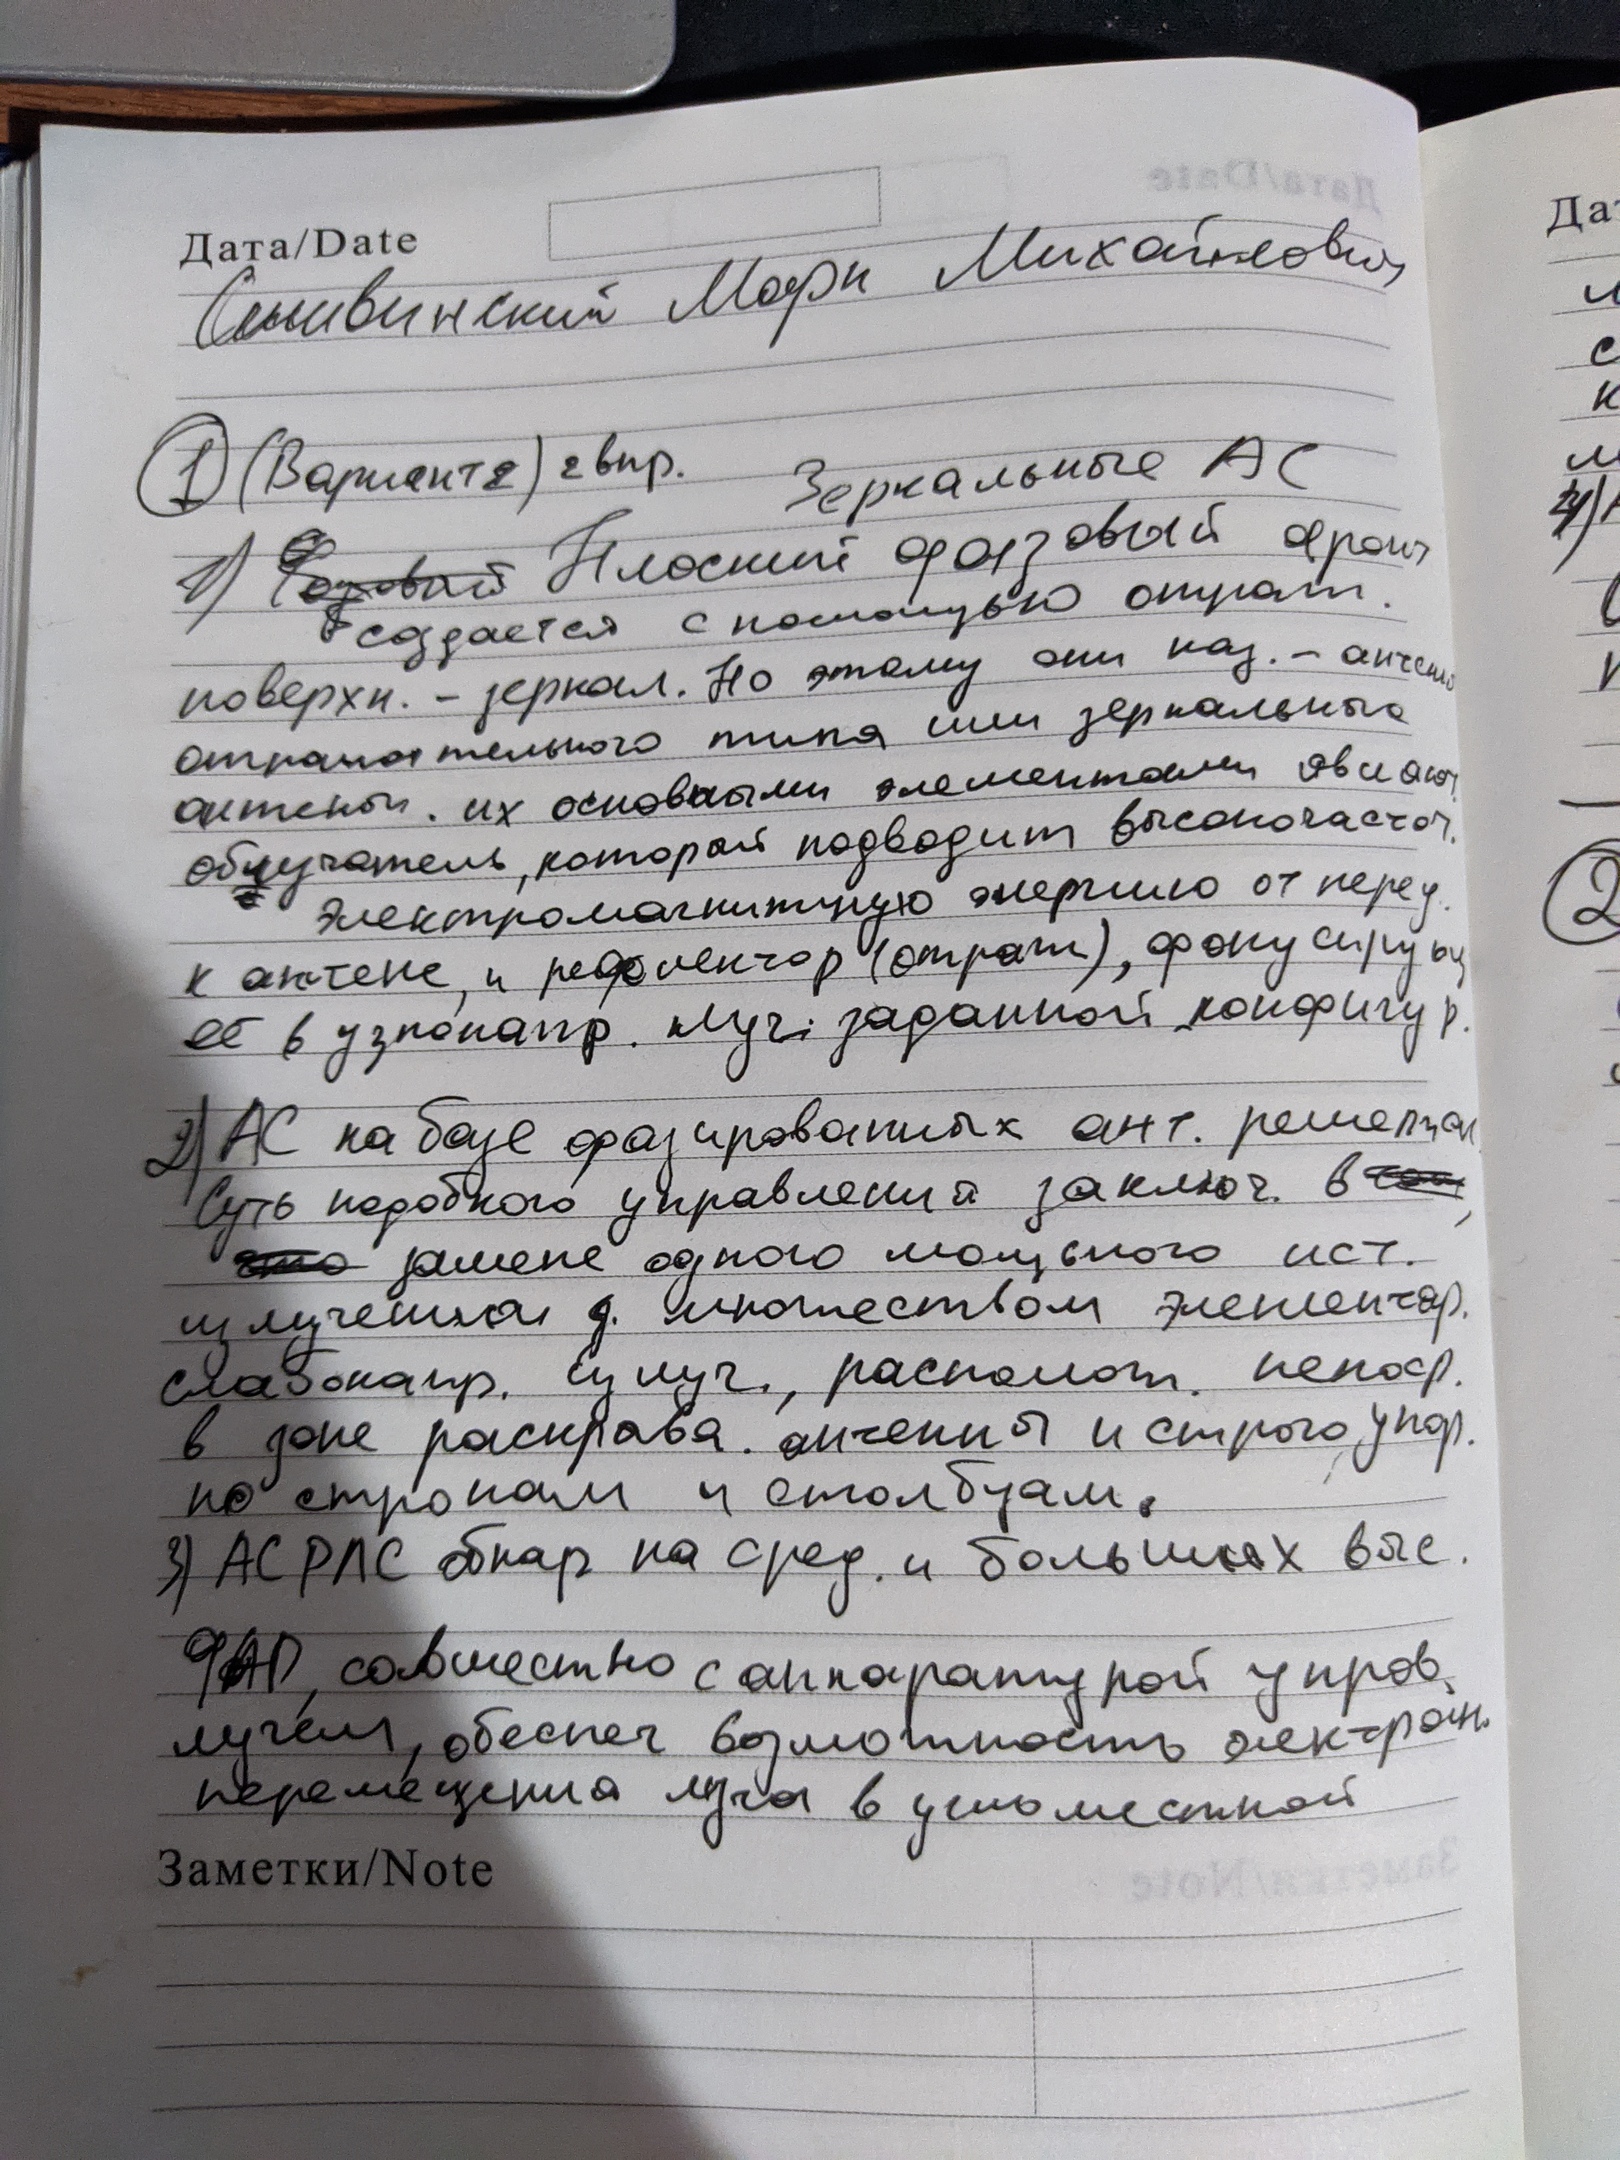 Дата/Date
Марк Михайлович
① (Вариант 2) 2 впр. Зеркальные АС
1) Фазовый Плоский фазовый фронт
создается с помощью отраж.
поверхн. – зеркал. По этому они наз. – антены
отражательного типа или зеркальные
антены. их основными элементами являют.
облучатель, который подводит высокочастот.
электромагнитную энергию от перед.
к антене, и рефлектор (отраж), фокусирующ
её в узконапр. луч. заданной конфигур.
2) АС на базе фазированных ант. решетках
Суть подобного управления заключ. в том,
что замене одного мощьного ист.
излучения д. множеством элементар.
слабонапр. излуч., располож. непоср.
в зоне раскрыва. антенны и строго упор.
по строкам и столбцам.
3) АС РЛС обнар на сред. и больших выс.
ФАР, совместно с аппаратурой управ.
лучём, обеспеч возможность электрон.
перемещения луча в угломестной
Заметки/Note
Да
2